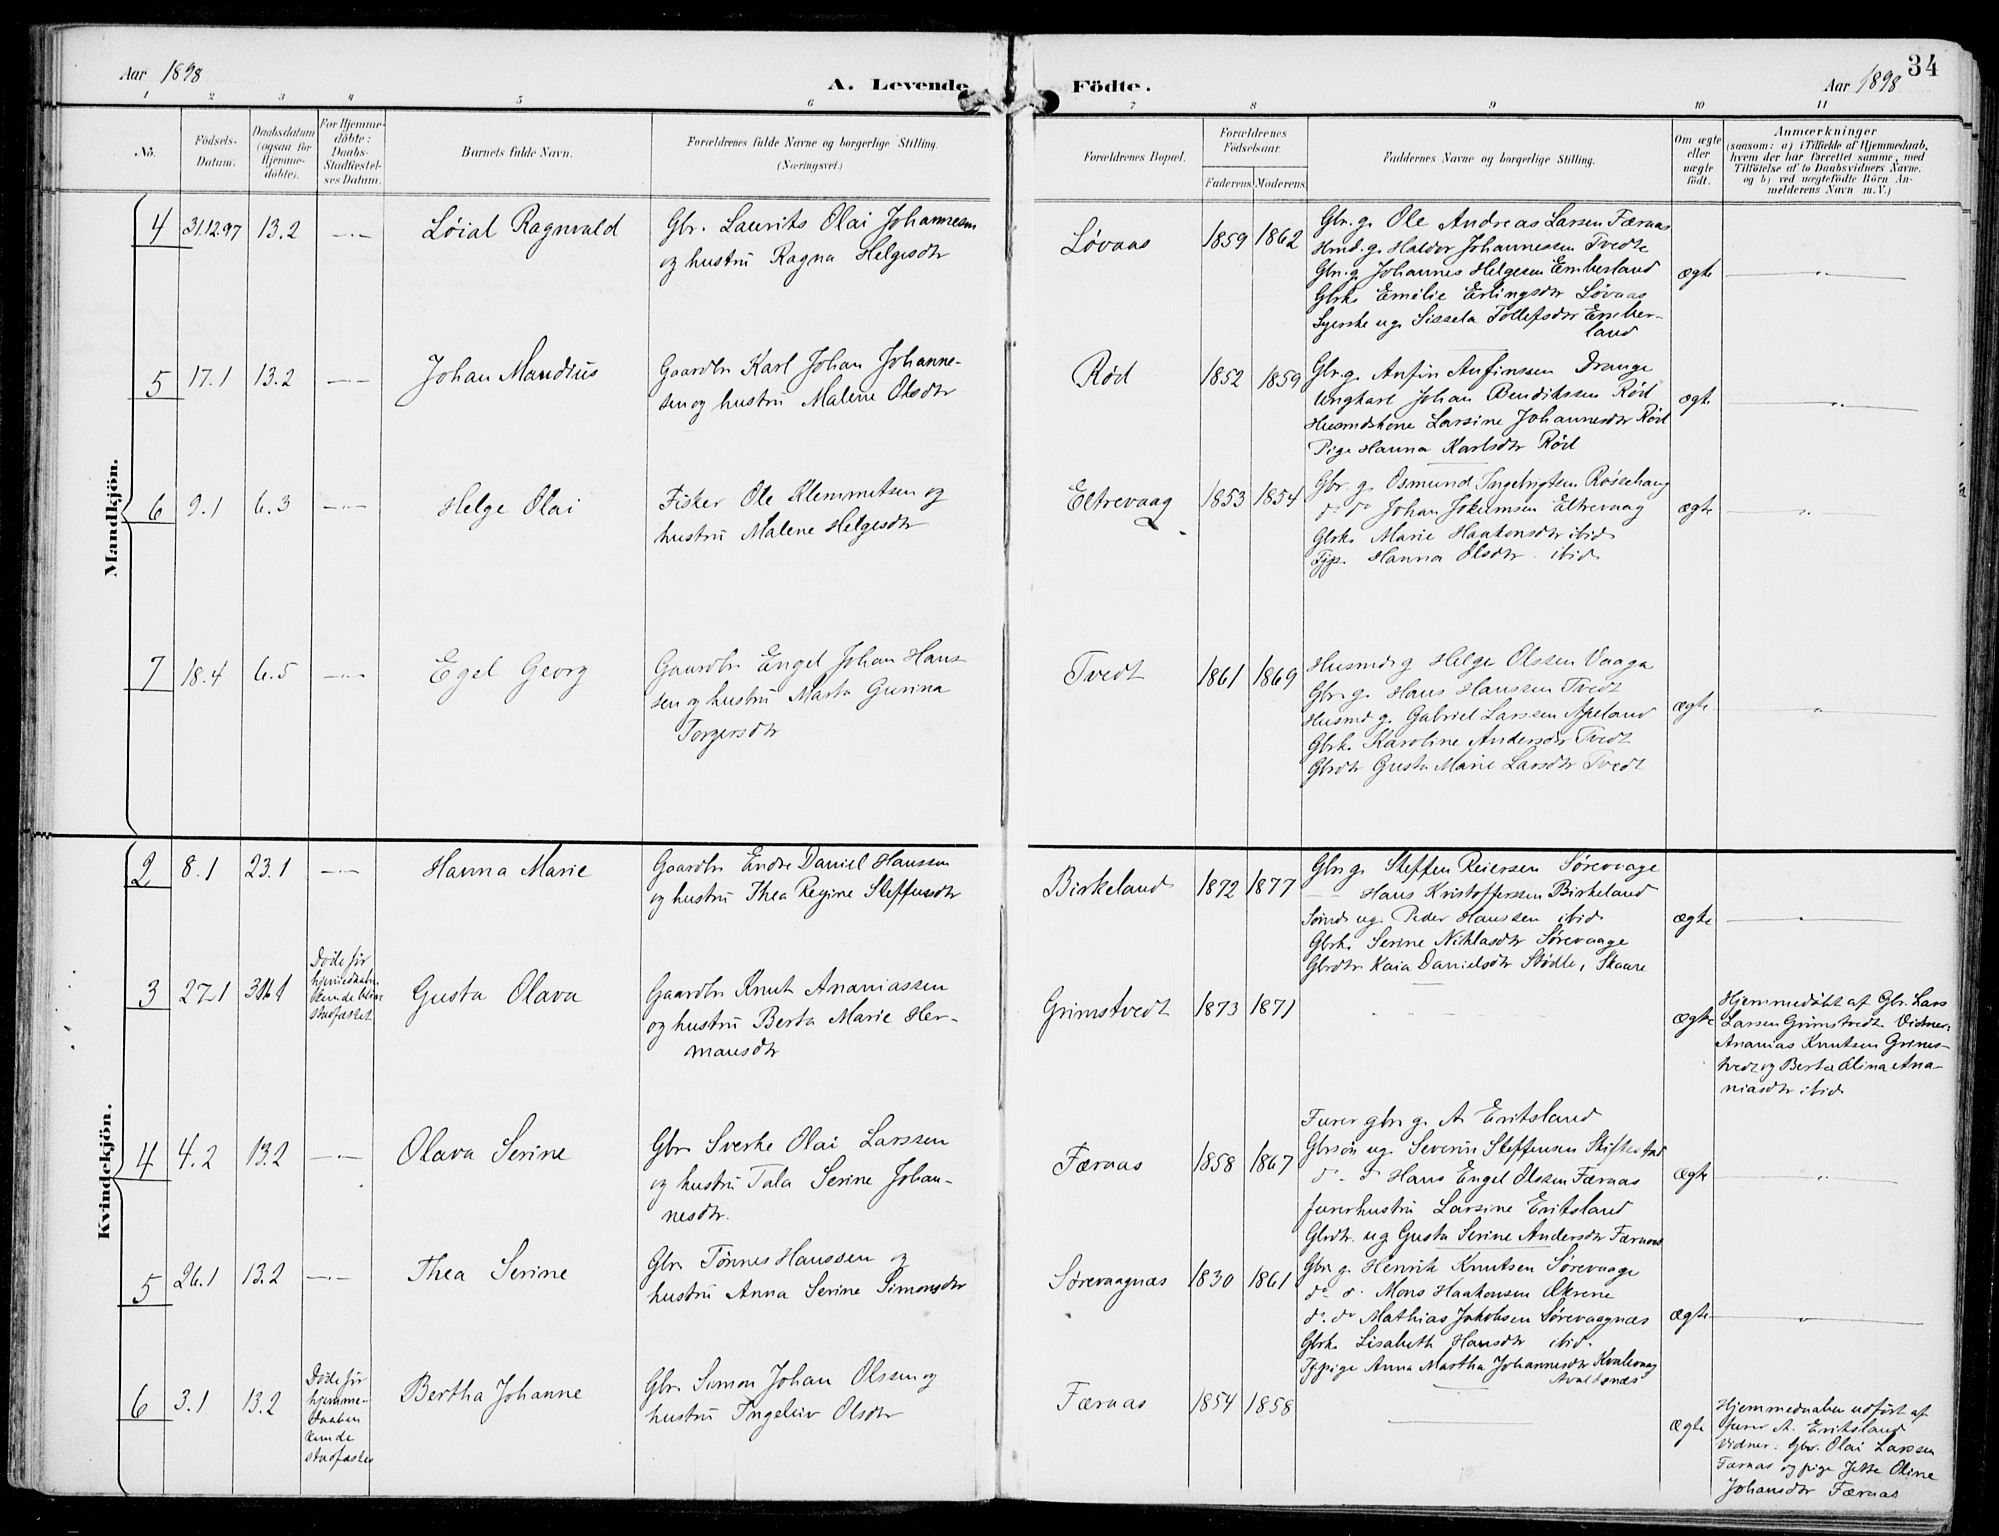 34
Aar 1898
A. Levende
Födte.
Aar 1898
1 2 3 4 5 6 7 8 9 10 11
No.
Födsels-
Datum.
Daabsdatum
(ogsaa for
Hjemme-
döbte).
For Hjemme-
döbte:
Daabs-
Stadfæstel-
ses Datum.
Barnets fulde Navn.
Forældrenes fulde Navne og borgerlige Stilling.
(Næringsvei.)
Forældrenes Bopæl.
Forældrenes
Födselsaar.
Faderens. Moderens.
Faddernes Navne og borgerlige Stilling.
Om ægte
eller
uægte
födt.
Anmærkninger
(saasom: a) i Tilfælde af Hjemmedaab,
hvem der har forrettet samme, med
Tilföielse af to Daabsvidners Navne,
og b) ved uægtefödte Börn An-
melderens Navn m. V.)
Mandkjön.
4 31.12.97 13.2 —"— Löial Ragnvald
Gbr. Laurits Olai Johannesen
og hustru Ragna Helgesdtr
Løvaas 1859 1862
Gbr. g. Ole Andreas Larsen Færaas
Hmd. g. Haldor Johannessen Tvedte
Gbr. g. Johannes Helgesen Emberland
Gbrk. Emelie Erlingsdtr Løvaas
Syerske ug. Sissela Tollefsdtr Ember-
land
ægte —"—
5 17.1 13.2 —"— Johan Mandius
Gaardbr Karl Johan Johanne-
sen og hustru Malene Olsdtr
Rød 1852 1859
Gbr. g. Anfin Anfinssen Drange
Ungkarl Johan Bendikssen Rød
Husmdskone Larsine Johannesdtr Rød
Pige Hanna Karlsdtr Rød
ægte —"—
6 9.1 6.3 —"— Helge Olai
Fisker Ole Klemmetsen og
hustru Malene Helgesdtr
Eltrevaag 1853 1854
Gbr. g. Osmund Ingebrigtsen Røssehaug
do do Johan Jokumsen Eltrevaag
Gbrk. Marie Haakonsdtr ibid.
Tjp. Hanna Olsdtr ibid.
ægte —"—
7 18.4 6.5 —"— Egel Georg
Gaardbr Engel Johan Hans
sen og hustru Marta Gurina
Torgersdtr
Tvedt 1861 1869
Husmd g Helge Olssen Vaaga
Gbr. g. Hans Hanssen Tvedt
Husmd g. Gabriel Larssen Apeland
Gbrk. Karoline Andersdtr Tvedt
Gbrdtr Gusta Marie Larsdtr Tvedt
ægte —"—
Kvindekjön.
2 8.1 23.1 —"— Hanna Marie
Gaardbr Endre Daniel Hanssen
og hustru Thea Regine Steffensdtr
Birkeland 1872 1877
Gbr. g. Steffen Reiersen Sørevaage
— Hans Kristoffersen Birkeland
Smd. ug. Peder Hanssen ibid.
Gbrk. Serine Niklasdtr Sørevaage
Gbrdtr Kaia Danielsdtr Stødle, Skaare
ægte —"—
3 27.1 31.1
Døde før
hjemmedaaben
kunde blive
stadfæstet
Gusta Olava
Gaardbr Knut Ananiassen
og hustru Berta Marie Her-
mansdtr
Grimstvedt 1873 1871
ægte
Hjemmedøbt af Gbr. Lars
Larsen Grimstvedt Vidner:
Ananias Knutsen Grims-
tvedt og Berta Elina Ana-
niasdtr ibid.
4 4.2 13.2 —"— Olava Serine
Gbr. Sverke Olai Larssen
og hustru Tala Serine Johan-
nesdtr.
Færaas 1858 1867
Furer gbr. g. A. Eritsland
Gbrsøn ug. Severin Steffensen Skiftestad
d. d Hans Engel Olssen Færaas
furerhustru Larsine Eritsland
Gbrdtr. ug Gusta Serine Andersdtr Færaas
ægte —"—
5 26.1 13.2 —"— Thea Serine
Gbr. Tønnes Hanssen og
hustru Anna Serine Simonsdtr
Sørevaagnæs 1830 1861
Gbr. g. Henrik Knutsen Sørevaage
do d. Mons Haakonsen Økrene
d. do Mathias Jakobsen Sørevaagnæs
Gbrk. Lisabeth Hansdtr ibid.
Tjpige Anna Martha Johannesdtr Kvalevaag
Avaldsnæs
ægte —"—
6 3.1 13.2
Døde før
hjemme-
daaben
kunde
stadfæstes
Bertha Johanne
Gbr. Simon Johan Olssen og
hustru Ingeleiv Olsdtr
Færaas 1854 1858
ægte
Hjemmedaaben udført af
furer A. Eritsland
Vidner: Gbr. Olai Larssen
Færaas og pige Jette Oline
Johansdtr Færaas